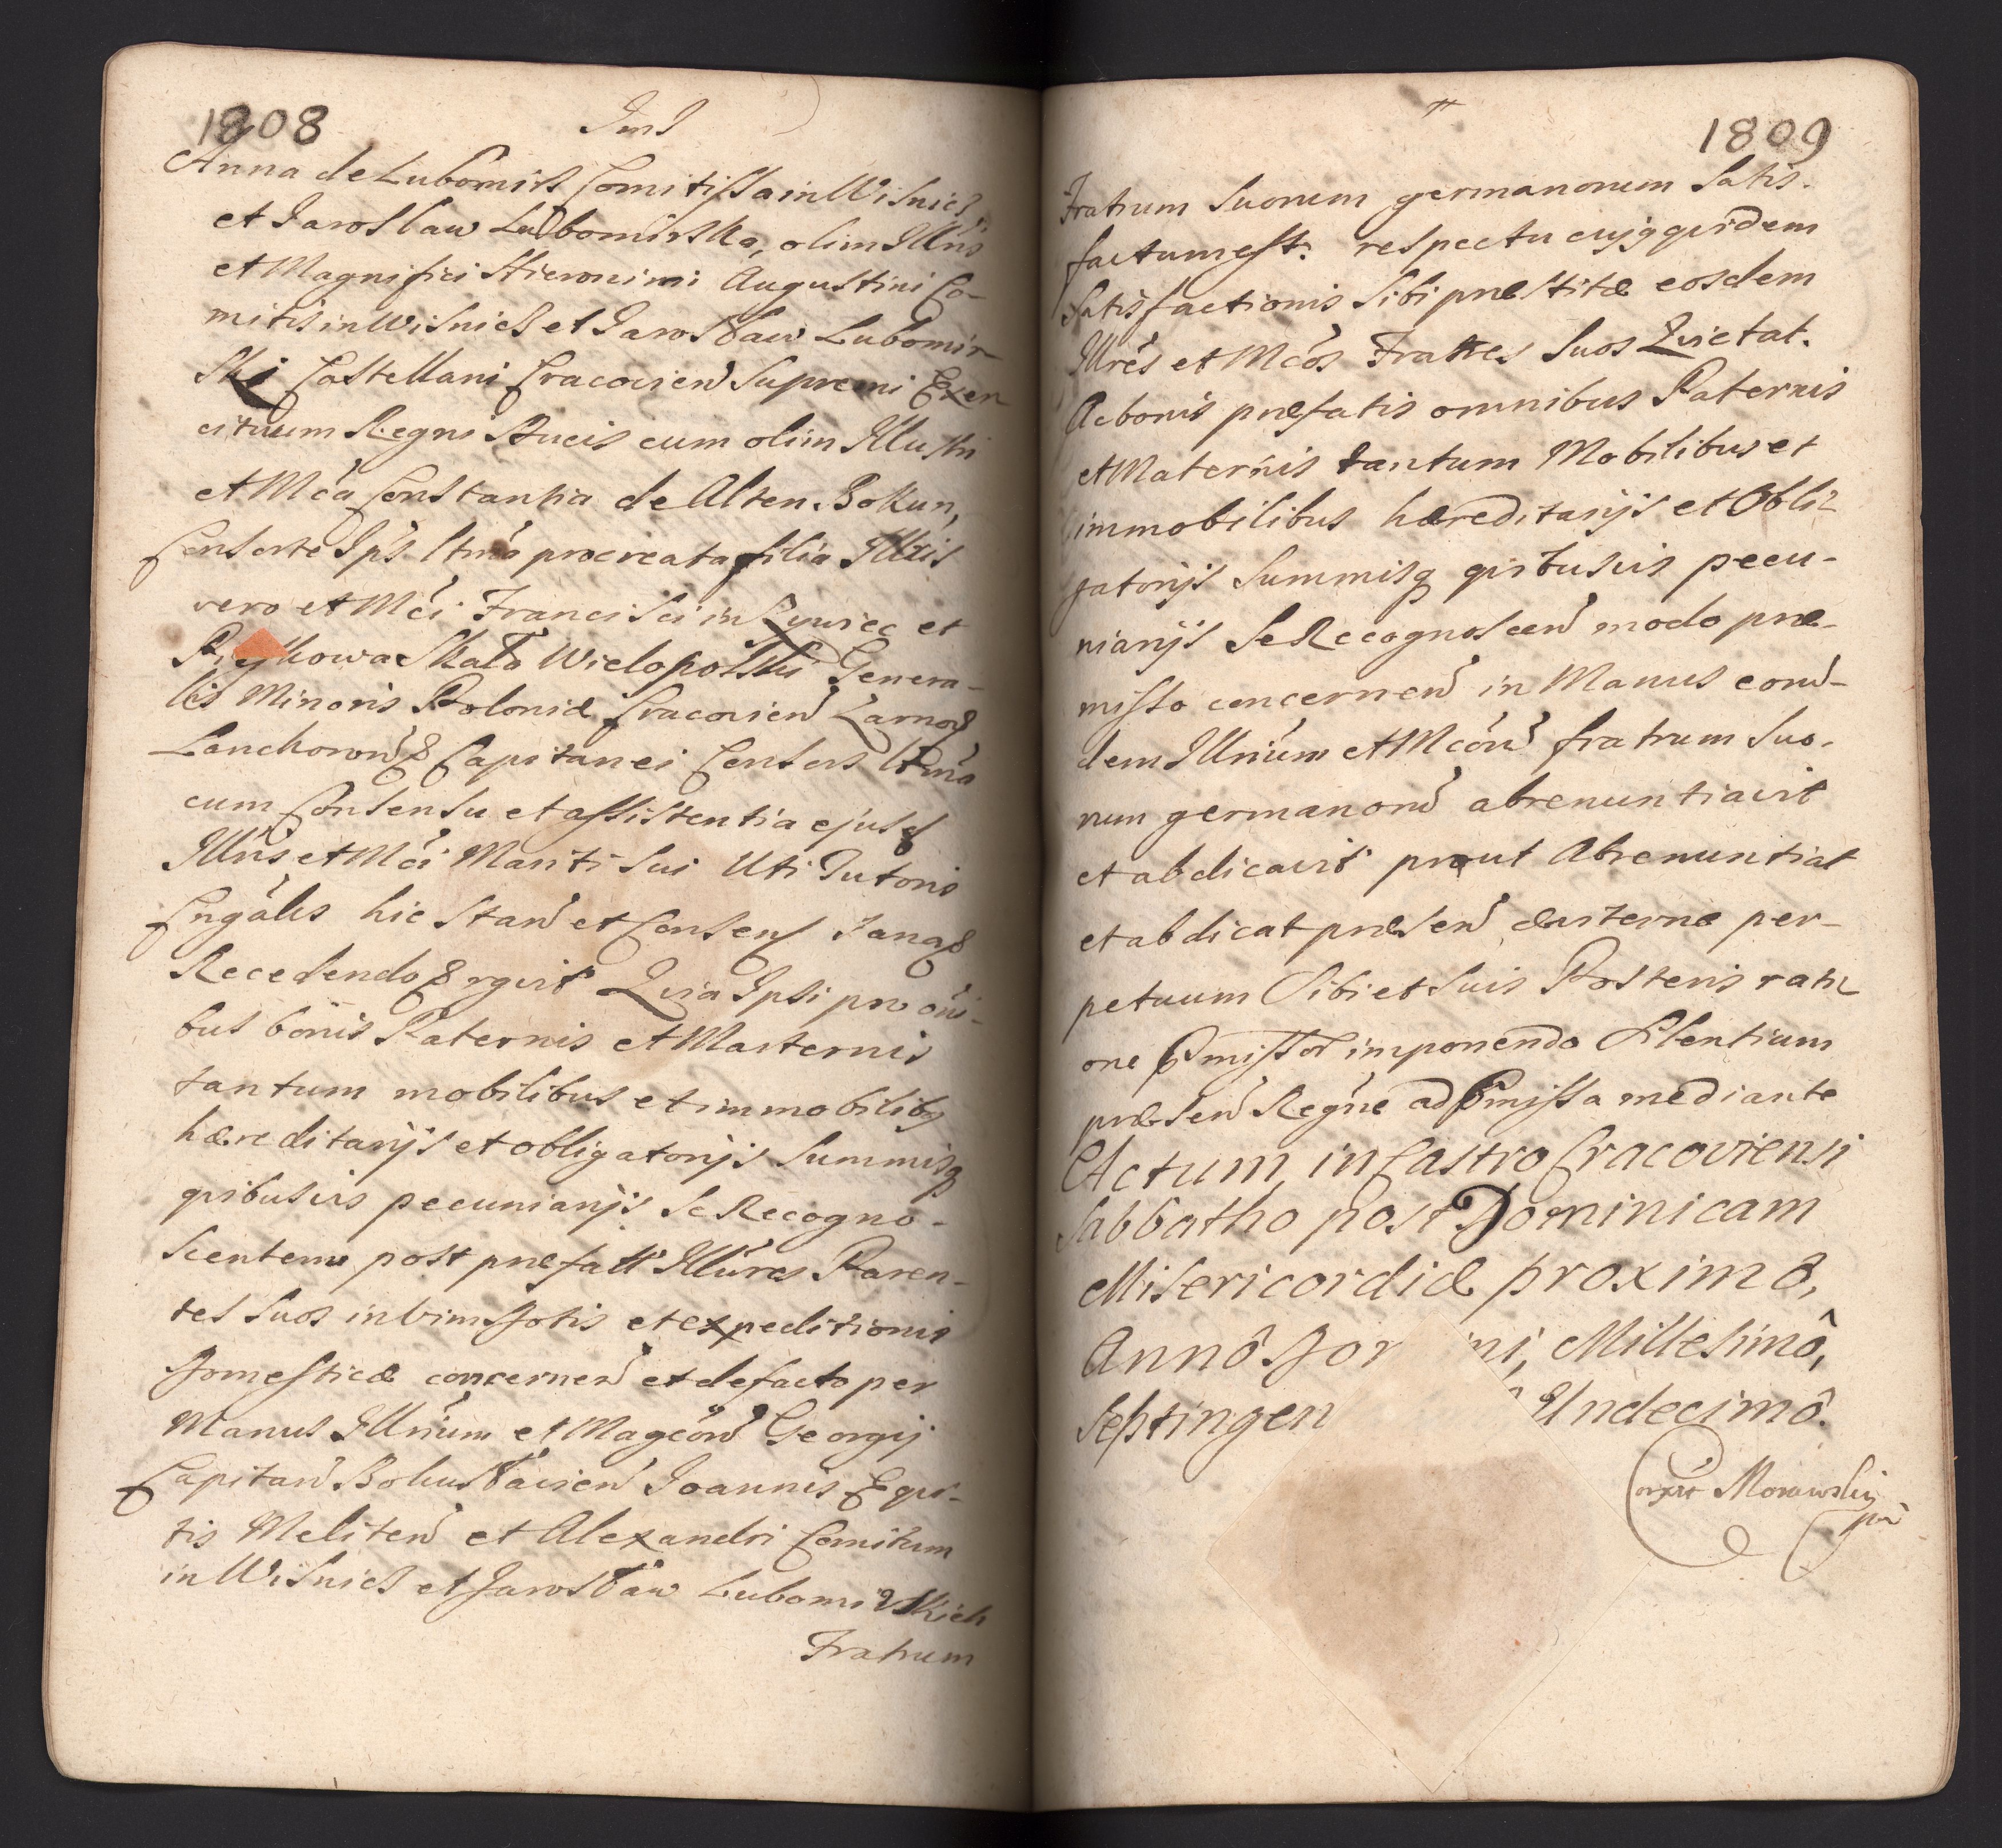 1808
Anna de Lubomirs Comitissa in Wisnicz
et Jaroslaw Lubomirska, olim Illris
et Magnifici Hieronimi Augustini Co-
mitis in Wisnicz et Jarosław Lubomir
ski Castellani Cracovien Supremi Exer
cituum Regni Ducis cum olim Illustri
et Mca Constantia de Alten. Bokun,
Consorte Ips ltma procreata filia Illris
vero et Mci Francisci in Zywiec et
Pieskowa Skała Wielopolski Genera-
lis Minoris Poloniæ Cracovien Zarnov
Lanckoron Capitanei Consors ltma
cum Consensu et assistentia ejusd
Illris et Mci Mariti sui Uti Tutoris
Cngalis hic stan et Consens Sana
Recedendo rgvit Quia Ipsi pro omi-
bus bonis Paternis et Maternis
tantum mobilibus et immobiliby
hæreditarijs et obligatorijs Summisq
qvibusvis pecuniarijs Se Recogno-
scentem post præfatt Illures Paren-
tes suos in vim Dotis et expeditionis
Domesticæ concernen et defacto per
Manus Illrium et Magcorum Georgij
Capitan Bohusłavien Joannis Eqvi-
tis Meliten et Alexandri Comitum
in Wisnicz et Jarosław Lubomirskich
Fratrum
1809
Fratrum Suorum germanorum Satis-
factum est. respectu cujq qvidem
Satisfactionis Sibi præstitæ eosdem
Illres et Mcos Fratres Suos Qvietat.
Ac bonis præfatis omnibus Paternis
et Maternis tantum Mobilibus et
immobilibus hæreditarijs et Obli-
gatorijs Summisq qvibusvis pecu-
niarijs Se Recognoscen modo præ-
misso concernen in Manus eorun-
dem Illrium et Mcorum fratrum Suo-
rum germanorum abrenuntiavit
et abdicavit prout Abrenuntiat
et abdicat præsen æviterne per-
petuum Sibi et Suis Posteris rati
one Pmissor imponendo Silentium
præsen Regne ad Pmissa mediante
Actum in Castro Cracoviensi
Sabbatho post Dominicam
Misericordiæ proximô,
Annô Do ni, Millesimô,
Septingen Undecimô.
Morawski